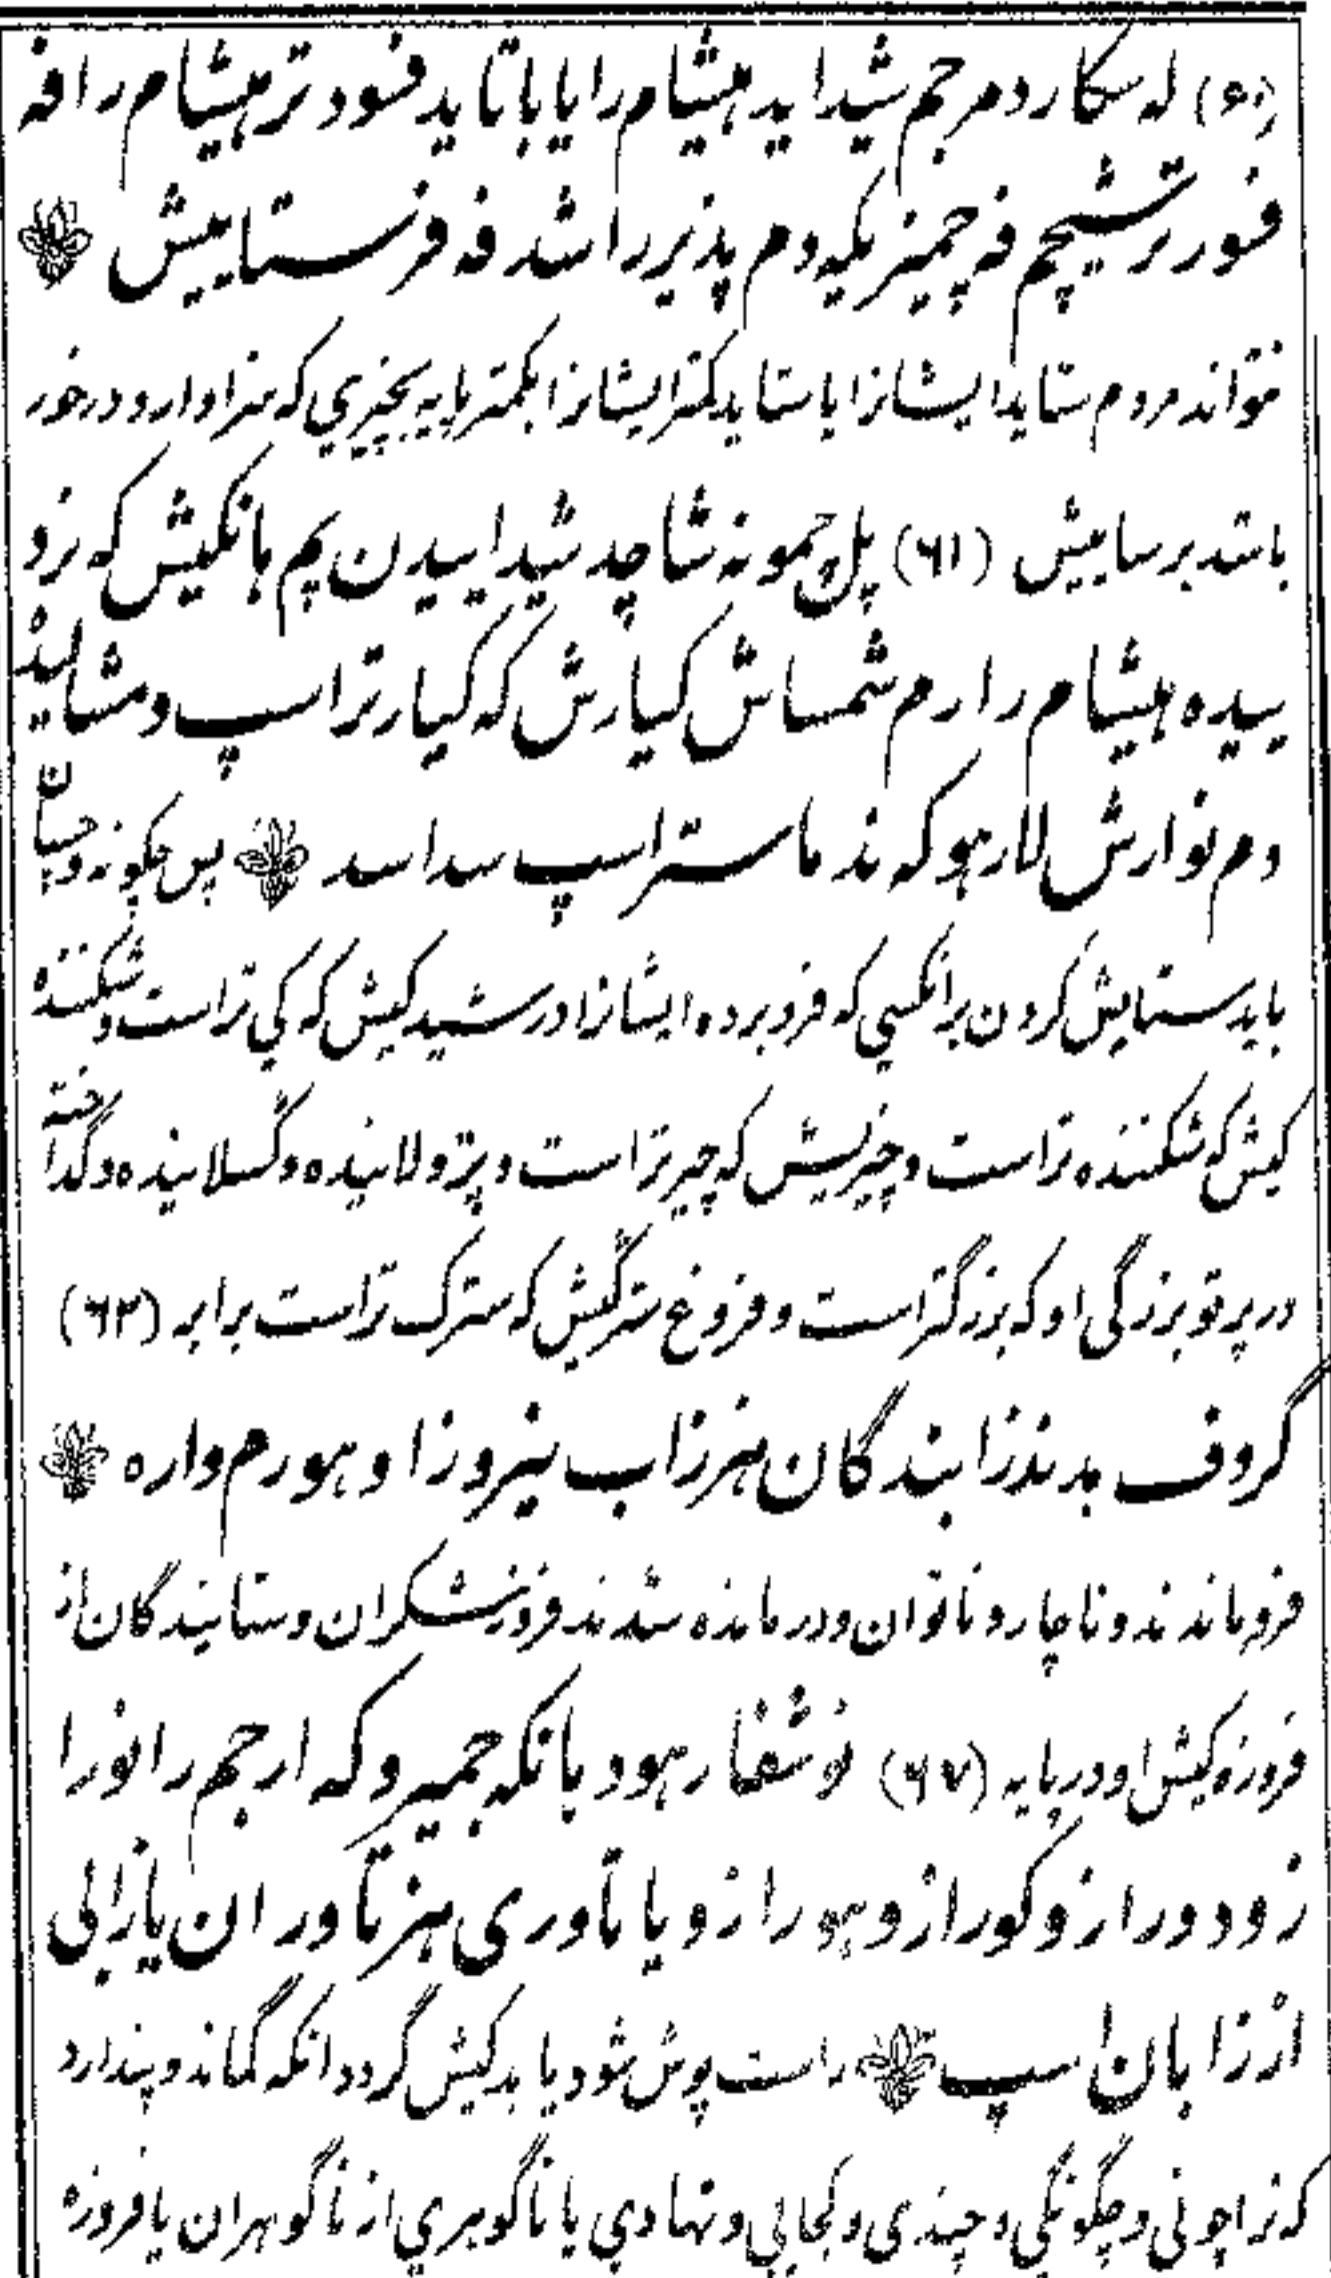 (۶۰) له سکاردم جم شیداید هیشام را یا باتاید فسودتر هیشام را فه
فسورتر شیچم فه چمیز یکه دم پذیر راشد فه فرستاییش
نتواند مردم ستاید ایشانرا یا ستاید کمتر ایشانرا بکمتر پایه بچیزی که سزاوار و درخور
باشد برسایش (۶۱) پل چمونه شاچد شیداییدن پم هانکیش که برو
ییده هیشام را رم شمساش کیارش که کیارتر اسپ و مشالید
دم نوارش لارهو که ند ماستر اسپ سداسد پس چگونه و چسان
باید ستایش کردن برانکسی که فرو برده ایشانرا در شید کیش که کی تراست و شکننده
کیش که شکننده تراست و چیریش که چیر تراست و پرتولاینده و گسلاینده و گداخته
در پرتو بزرگی او که بزرگتر است و فروغ سترگیش که سترگ تراست برابر (۶۲)
گروف بدندزابندگان هنرزاب نیروزا و هورم واره
فرو ماندند و ناچار و ناتوان و درمانده شدند فروزشگران و ستایندگان از
فروزه کیش او در پایه (۶۷) نوشفار هود یا نکه جمیرو که ار جم را نورا
زود ور از و کور از و هور از و یا تاوری هنر تاوران یا زابی
از زابان اسپ راست پوش شود یا بدکیش گردد انکه گماند و پندارد
که ترا چونی و چگونگی و چندی و کجایی و نهادی یا ناگوهری از ناگوهران یا فروزه